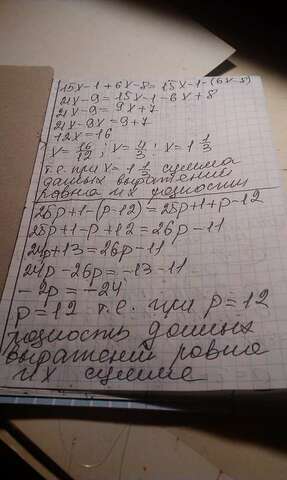 15x-1+6x-8=15x-1-(6x-8)
21x-9=15x-1-6x+8
21x-9=9x+7
21x-9x=9+7
12x=16
x=16/12; x=4/3; x=1 1/3
т.е. при x=1 1/3 сумма
данных выражений
равна их разности
25p+1-(p-12)=25p+1+p-12
25p+1-p+12=26p-11
24p+13=26p-11
24p-26p=-13-11
-2p=-24
p=12 т.е. при p=12
разность данных
выражений равна
их сумме